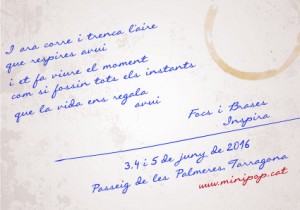 I ara corre i trenca l'aire
que respires avui
i et fa viure el moment
com si fossin tots els instants
que la vida ens regala
avui
Focs i Brases
Inspira
3.4 i 5 de juny de 2016
Passeig de les Palmeres. Tarragona
www.minipop.cat